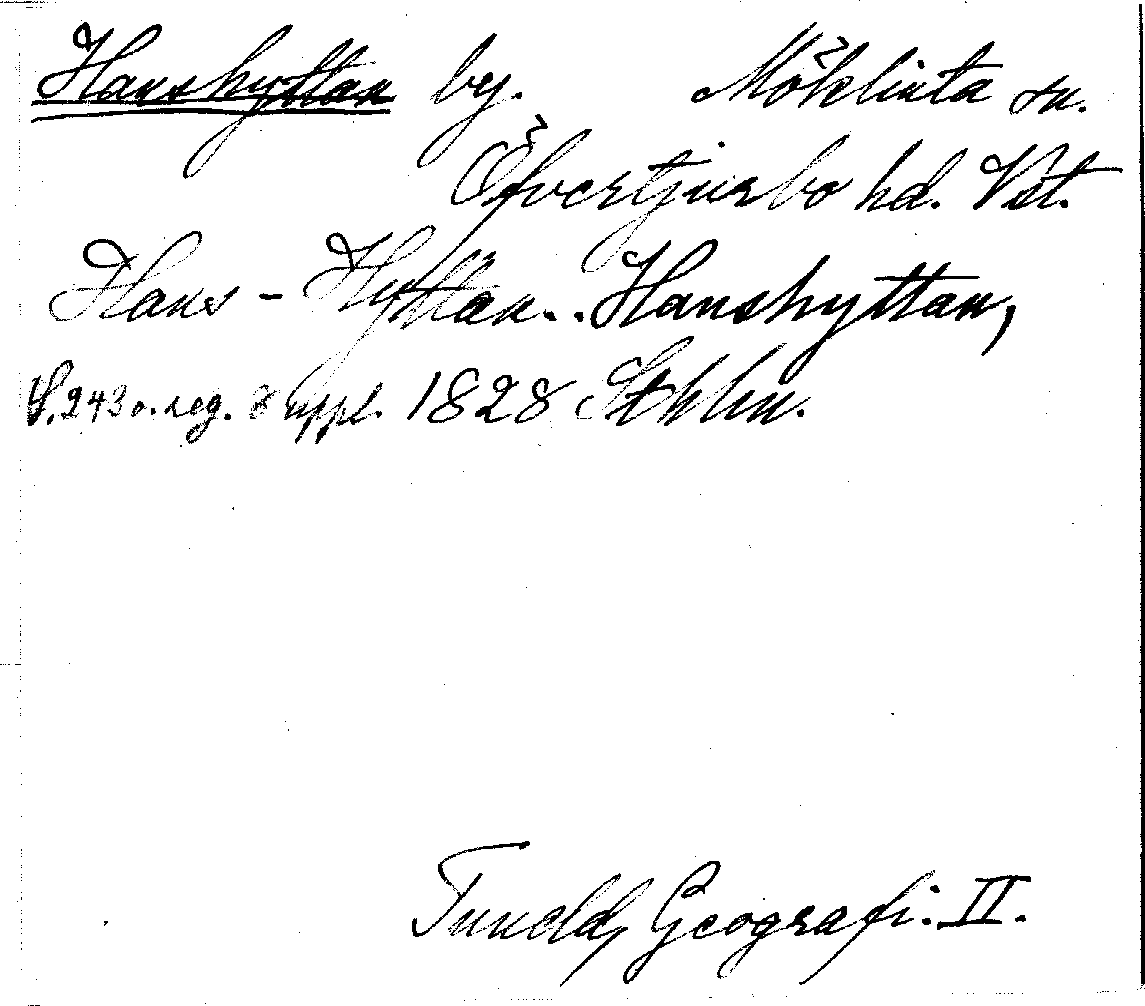 Hanshyttan by. Möklinta sn.
Öfvertjurbo hd. Vst.
Hans-Hyttan.. Hanshyttan,
S. 243 o. reg. 8 uppl. 1828 Sthlm.
Tuneld, Geografi. II.